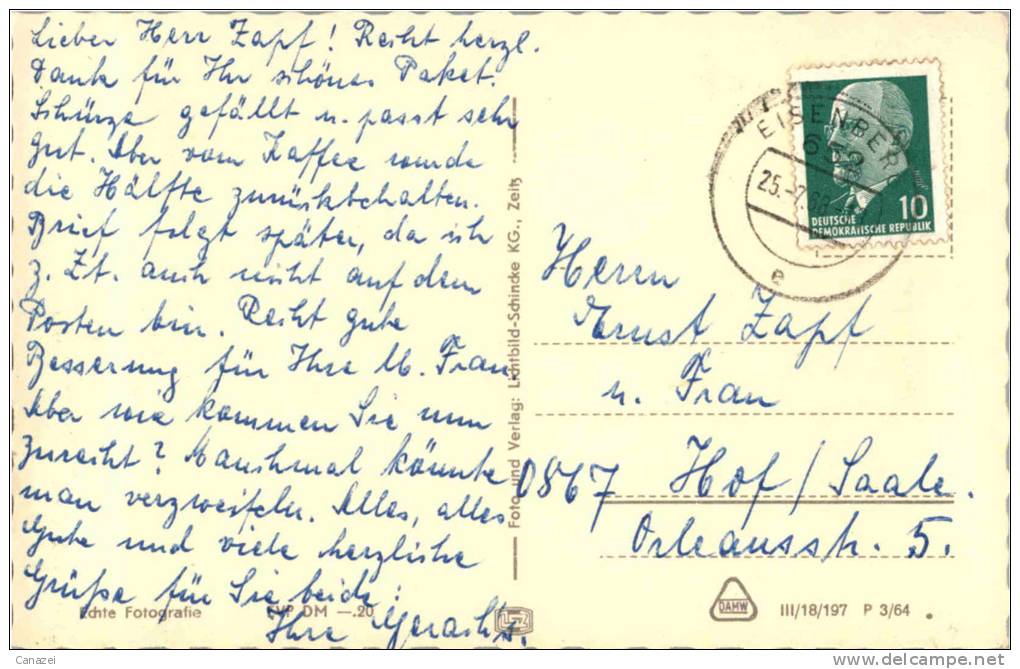 Lieber Herr Zapf! Recht herzl.
Dank für Ihr schönes Paket.
Schürze gefällt u. passt sehr
gut. Aber vom Kaffee wurde
die Hälfte zurückbehalten.
Brief folgt später, da ich
z. Zt. auch nicht auf dem
Posten bin. Recht gute
Besserung für Ihre lb. Frau
Aber wie kommen Sie nun
zurecht? Manchmal könnte
man verzweifeln. Alles, alles
Gute und viele herzliche
Grüße für Sie beide:
Ihre Gerachs.
Echte Fotografie
EVP DM —.20
Foto und Verlag: Lichtbild-Schincke KG., Zeitz
EISENBERG
652
25.-7.66
e
10
DEUTSCHE
DEMOKRATISCHE REPUBLIK
Herrn
Ernst Zapf
u. Frau
0867 Hof/Saale.
Orleansstr. 5.
DAMW
III/18/197 P 3/64
Canazei
www.delcampe.net